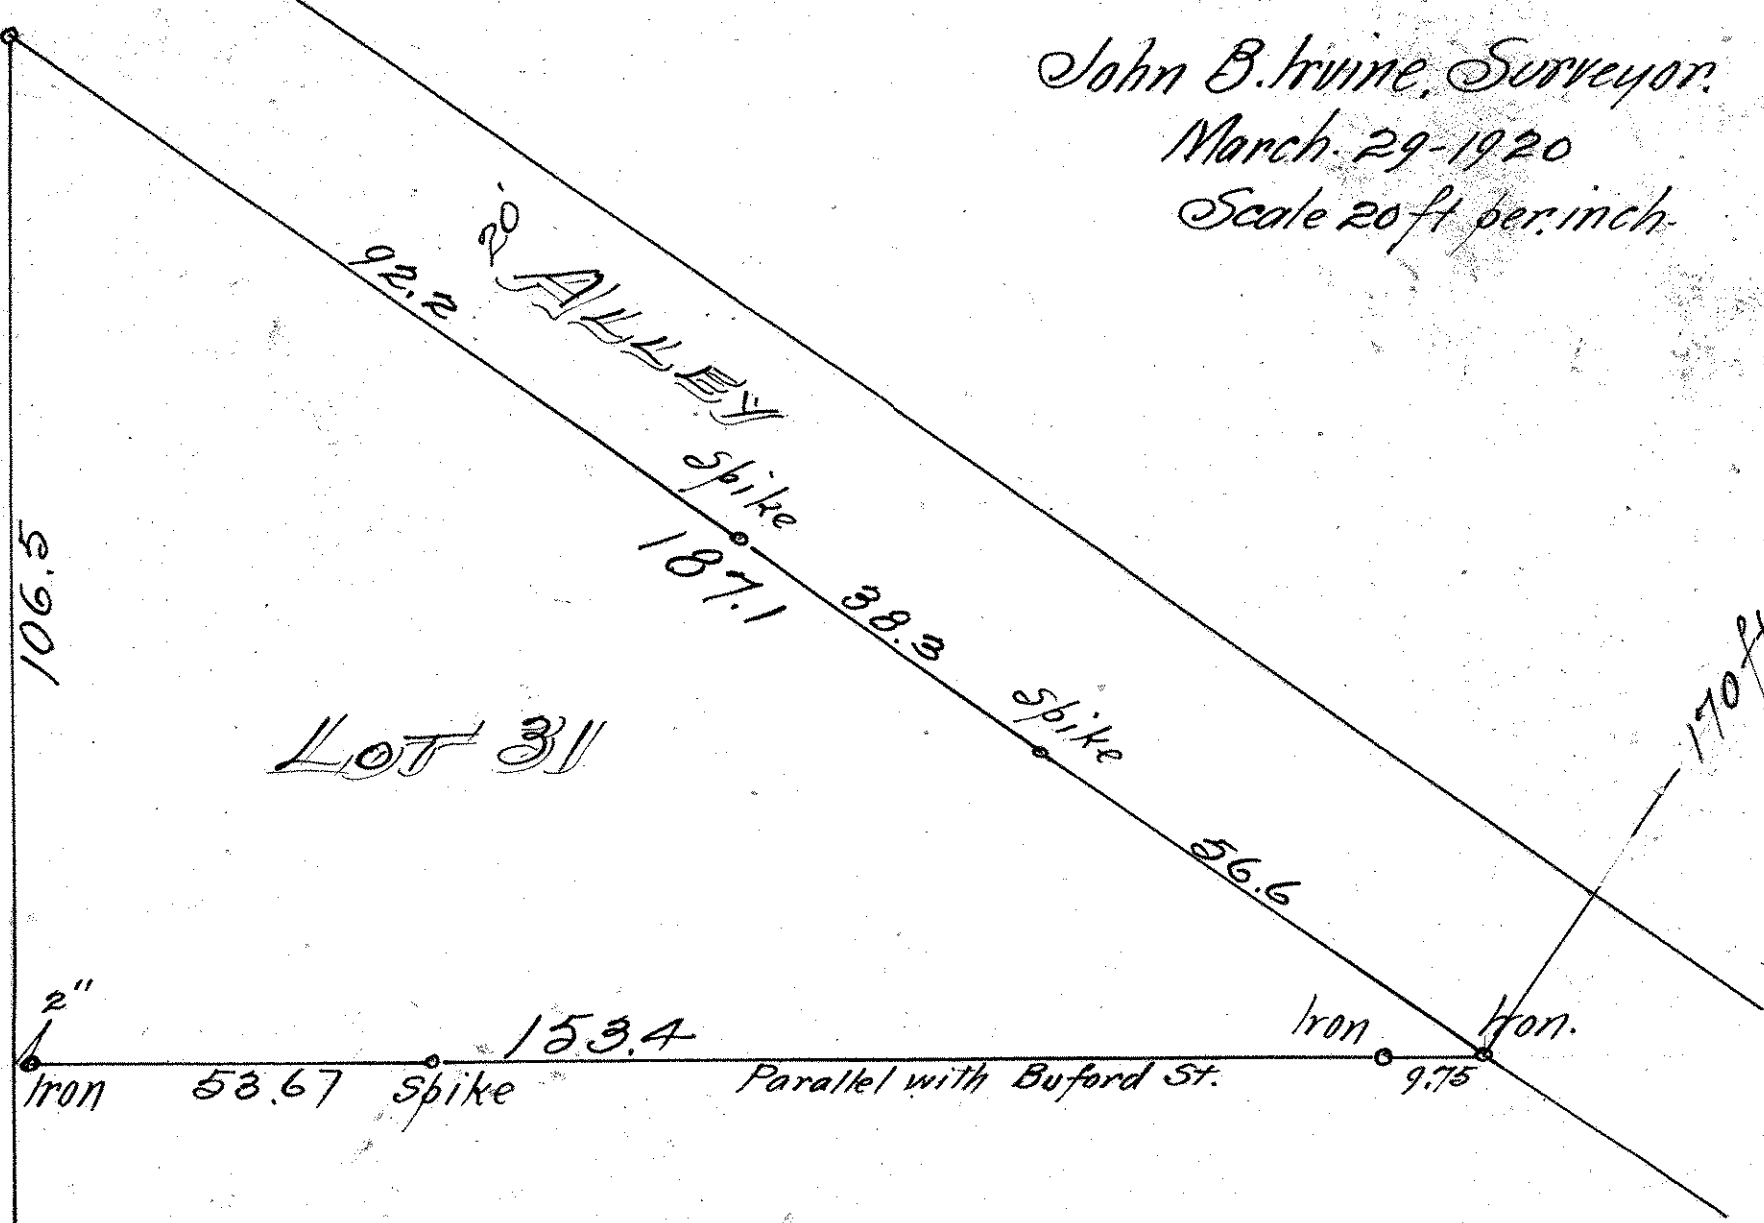 John B. Irvine, Surveyor.
March. 29-1920
Scale 20 ft per inch
20'
ALLEY
92.2
Spike
187.1
38.3
Spike
56.6
106.5
LOT 31
170 ft
2"
Iron
53.67
Spike
153.4
Parallel with Buford St.
Iron
Iron.
9.75